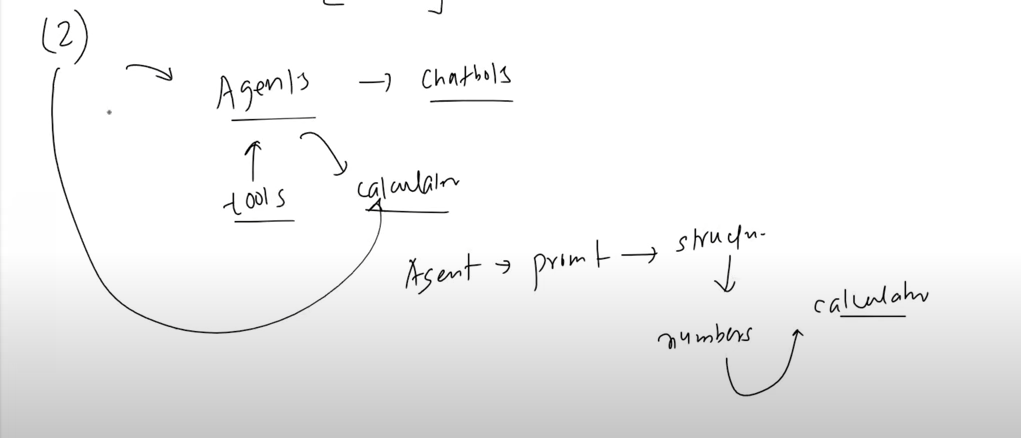 (2)
Agents → Chatbots
tools
calculator
Agent → promt → structu.
numbers
calculator